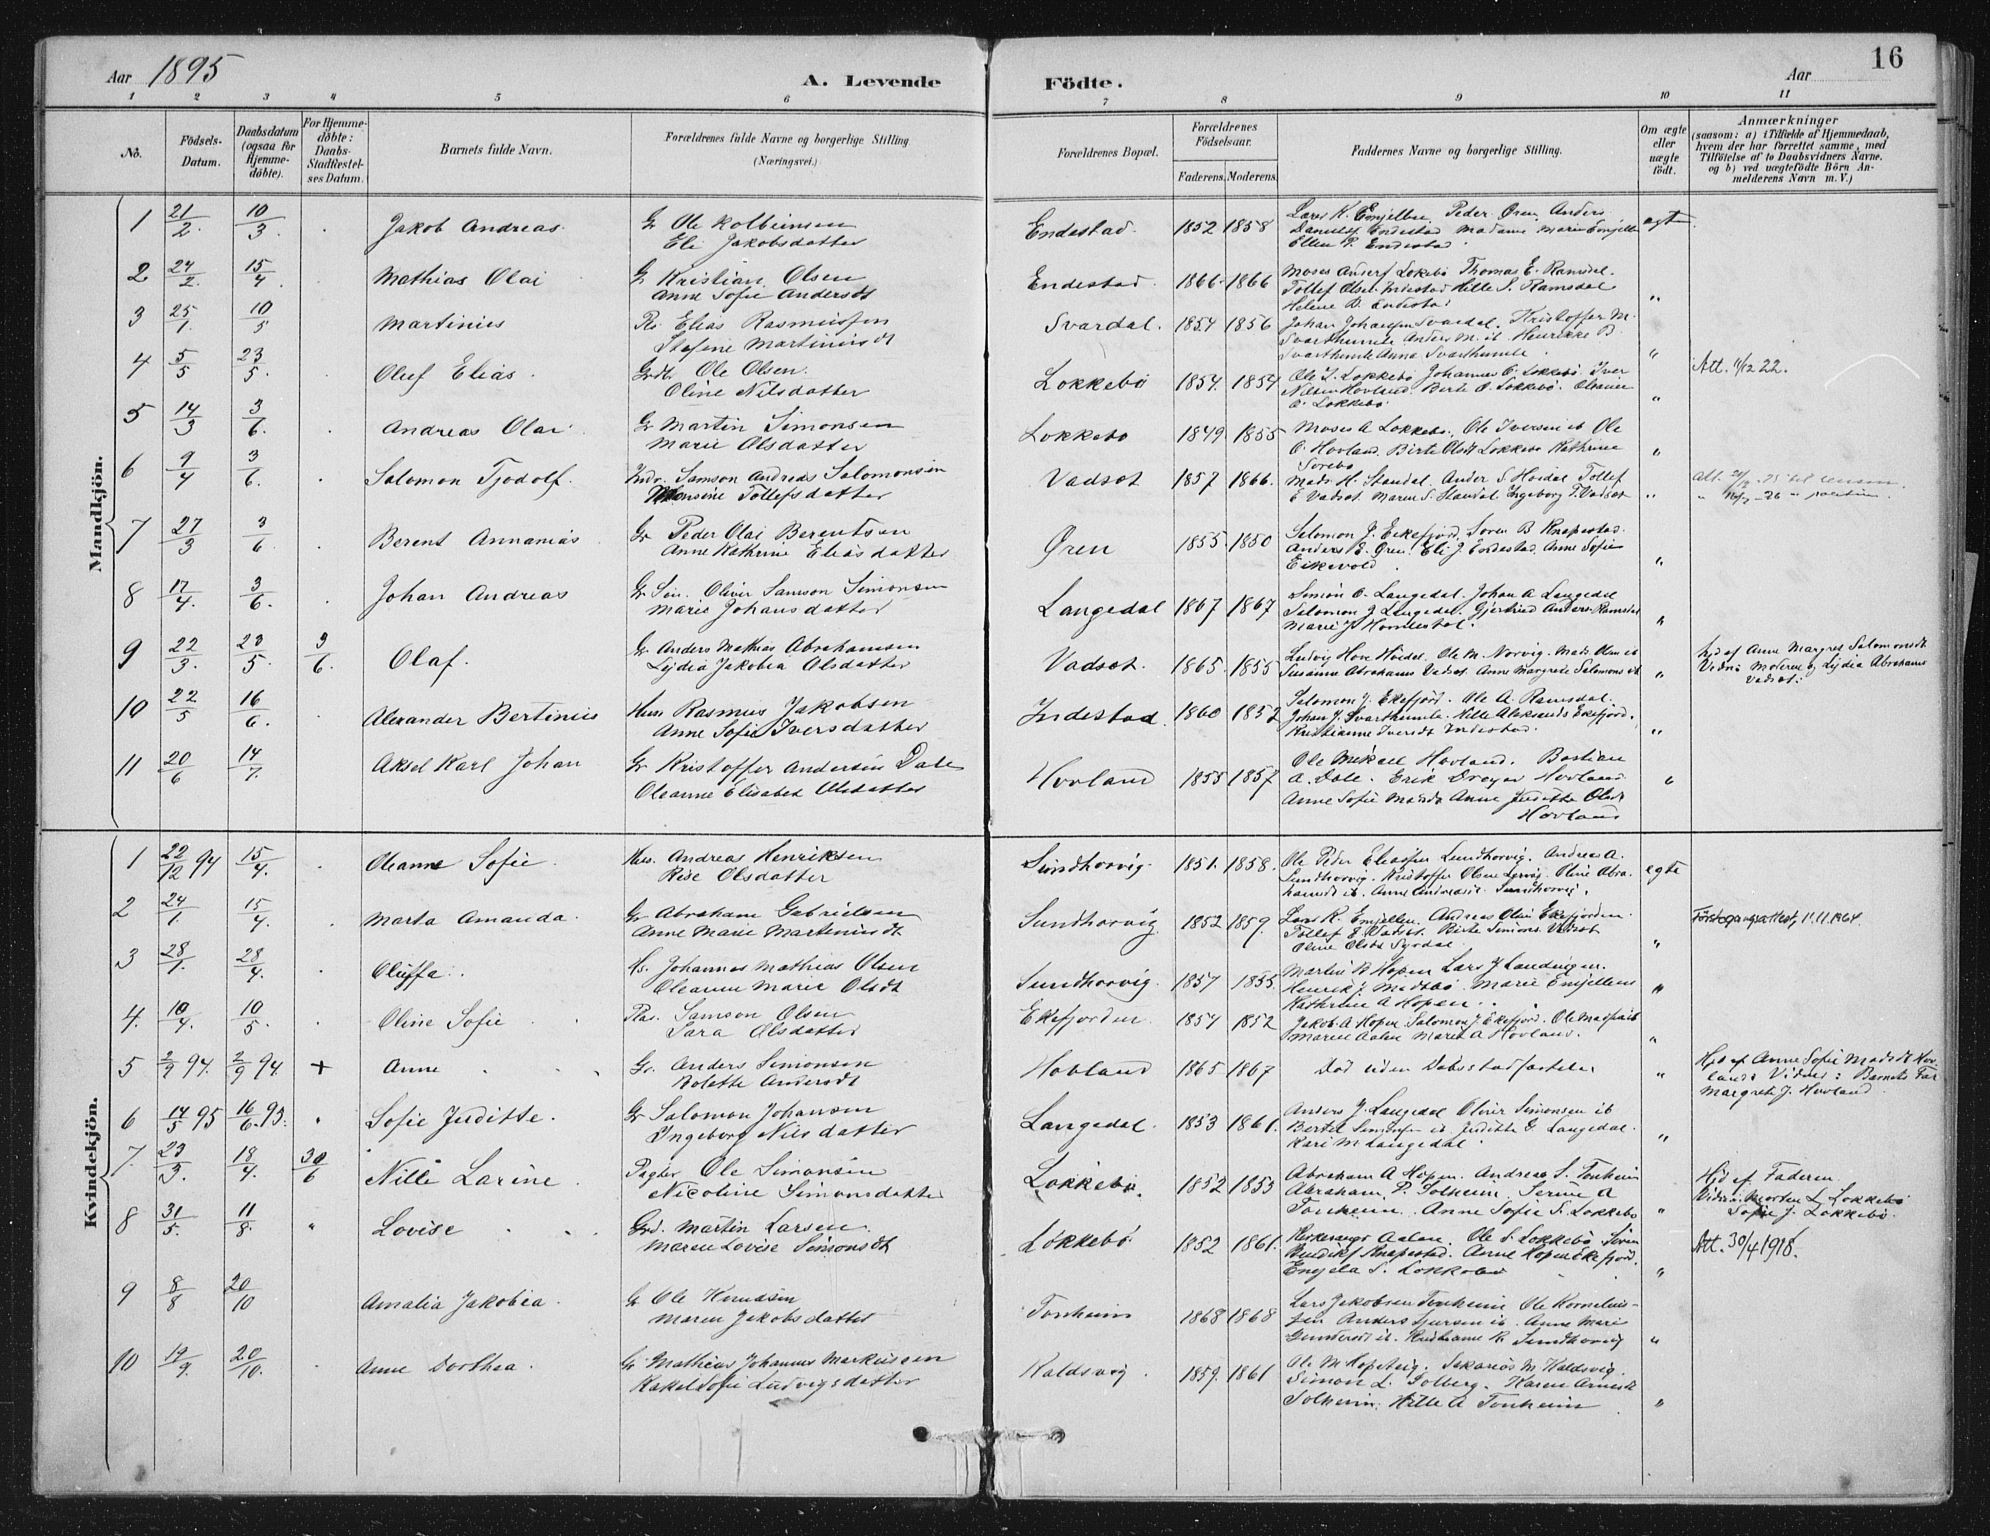 Aar 1895 A. Levende Födte. Aar 16
1 2 3 4 5 6 7 8 9 10 11
No. Födsels-Datum. Daabsdatum (ogsaa for Hjemme-döbte). For Hjemme-döbte: Daabs-Stadfæstel-ses Datum. Barnets fulde Navn. Forældrenes fulde Navne og borgerlige Stilling. (Næringsvei.) Forældrenes Bopæl. Forældrenes Födselsaar. Faderens. Moderens. Faddernes Navne og borgerlige Stilling. Om ægte eller uægte födt. Anmærkninger (saasom: a) i Tilfælde af Hjemmedaab, hvem der har forrettet samme, med Tilföielse af to Daabsvidners Navne, og b) ved uægtefödte Börn An-melderens Navn m. V.)
Mandkjön.
1 21/2. 10/3 Jakob Andreas. Gr Ole Kolbeinsen
Eli Jakobsdatter Endestad. 1852 1858 Lars K. Emjellen Peder Øren Anders
Endestad Madame Marie Emjellen
Ellen P. Endestad ægte
2 24/2. 15/4 Mathias Olai Gr Kristian Olsen
Anne Sofie Andersdt Endestad 1866 1866 Moses Anders Lokebø Thomas E. Ramsdal.
Tollef Olsen Indestad Hille S. Ramsdal
Helene B. Endestad "
3 25/1. 10/5 Martinius Elias Rasmussen
Stefine Martinusdt Svardal. 1854 1856 Johan Johansen Svardal. Kristoffer M.
Svarthumle Anders M. ib Henrikke B.
Svarthumle Anna Svarthumle. "
4 5/5 23/5. Oluf Elias. Ole Olsen.
Oline Nilsdatter Lokkebø 1854. 1854 Ole L. Lokkebø Johannes O. Lokkebø Iver
Nilsen Hovland. Berte O. Lokkebø. Oleanne
O. Lokkebø " Att. 11/12 22.
5 14/3 3/6. Andreas Olai Gr Martin Simonsen
Marie Olsdatter Lokkebø 1849 1855 Moses A Lokkebø. Ole Iversen ib Ole
O. Hovland. Birte Olsdt Lokkebø Kathrine
Sørebø "
6 9/4 3/6. Salomon Tjodolf. Indr. Samson Andreas Salomonsen
Tollefsdatter Vadsøt 1857 1866. Mads H. Standal. Ander S Hoidal Tollef
E Vadsøt. Maren S. Standal Ingeborg T. Vadsøt "
7 27/3 3/6 Berent Annanias Gr Peder Olai Berentsen
Anne Kathrine Eliasdatter Øren 1855 1850 Salomon J. Eikefjord. Søren B Knapestad.
Anders E. Øren. Eli J Endestad. Anne Sofie
Eikevold. "
8 17/4. 3/6. Johan Andreas Gr Søn. Oliver Samson Simonsen
Marie Johansdatter Langedal 1867 1867 Simon O. Langedal. Johan A Langedal
Salomon J Langedal. Gjertrud Anders. Ramsdal
Marie J. Homlestøl. "
9 22/3. 23/5 3/6. Olaf. Gr. Anders Mathias Abrahamsen
Lydia Jakobea Olsdatter Vadsøt. 1865. 1855 Ludvig Hove Hoidal. Ole M. Norvig. Mads Olsen ib
Susanne Abrahams Vadsøt Anne Margrete Salomons ib " Hjd af Anne Margret Salomonsdt
Vidne: Moren og Lydia Abrahams
Vadsøt.
10 22/5 16/6. Alexander Bertinius Hm Rasmus Jakobsen
Anne Sofie Iversdatter Indestad 1860 1852 Salomon J. Ekefjord. Ole A. Ramsdal.
Johan J. Svarthumle. Hille Aleksands Ekefjord.
Kristianne Iversdt Indestad. "
11 20/6 14/7. Aksel Karl Johan Gr Kristoffer Andersen Dale
Oleanne Elisabet Olsdatter Hovland 1855 1857 Ole Mikael Hovland. Bastian
A. Dale. Erik Dreyer Hovland
Anne Sofie Madsdt Anne Juditte Olsdt
Hovland "
Kvindekjön.
1 22/12 94 15/4. Oleanne Sofie. Hus. Andreas Henriksen
Rise Olsdatter Sundhorvig. 1851. 1858. Ole Peder Eliasen Sundhorvig. Andreas A.
Sundhorvig. Kristoffer Olsen Lervig. Oline Abra-
hamsdt ib. Anne Andreasdt Sundhorvig. egte
2 24/1. 15/4. Marta Amanda. Gr Abraham Gabrielsen
Anne Marie Martinusdt Sundhorvig 1852 1859. Lars K. Emjellen. Andreas Olsen Ekefjorden.
Tollef E Vadsøt. Birte Simons Vadsøt
Oline Olsdt Syrdal. " Förstegangsattest, 11.11.1964
3 28/1. 28/4. Oluffa. Hs. Johannes Mathias Olsen
Oleanne Marie Olsdt Sundhorvig. 1857 1855. Martin B Hopen Lars J Landøien.
Henrik J. Madsbø. Marie Emjellens
Kathrine A Hopen. "
4. 10/4. 10/5. Oline Sofie Samson Olsen
Sara Olsdatter Ekefjorden 1854 1852 Jakob A Hopen. Salomon J. Ekefjord. Ole Madsen ib
Maren Aalen Maret A Hovland. "
5 2/9 94. 2/9 94. + Anne Gr. Anders Simonsen
Bolette Andersdt Hovland 1865 1867 Död uden Dåbsstadfæstelse " Hjd af Anne Sofie Madsdt Hov-
land: Vidner: Barnets Far
Margrete J. Hovland.
6 14/5 95 16/6 95. Sofie Juditte. Gr Salomon Johansen
Ingeborg Nilsdatter Langedal. 1853 1861. Anders J. Langedal Oliver Simonsen ib
Bertel ib Juditte G. Langedal.
Kari M Langedal "
7. 23/3. 18/4. 30/6 Nille Larine Ole Simonsen
Nicoline Simonsdatter Lokkebø. 1852 1853 Abraham A Hopen. Andreas S. Tonheim
Abraham P. Solheim. Serine A
Tonheim. Anne Sofie S. Lokkebø " Hjd af Faderen
Vidne: Morten L Lokkebø
Sofie J. Lokkebø.
8 31/5. 11/8. " Lovise Martin Larsen.
Maren Lovise Simonsdt Lokkebø 1852 1861. Kirkesanger Aalen. Ole S. Lokkebø. Søren
Bendiks Knapestad. Anne Hopen Ekefjord.
Engela S. Lokkebø " Att. 30/4 1918.
9 8/8 20/10 Amalia Jakobea Gr Ole Knudsen
Maren Jakobsdatter Tonheim 1868 1868 Lars Jakobsen Tonheim Ole Kornelius-
sen Anders Sjursen ib. Anne Marie
Gundersdt ib. Kristianne R. Sundhorvig "
10 19/9. 20/10. Anne Dorthea. Gr. Mathias Johannes Markussen
Rakel Sofie Ludvigsdatter Kaldsvig. 1859. 1861 Ole M Hopsteig. Sakarias M. Kaldsvig.
Simon L. Solberg. Karen Arnesdt
Solheim. Hille A Tonheim "